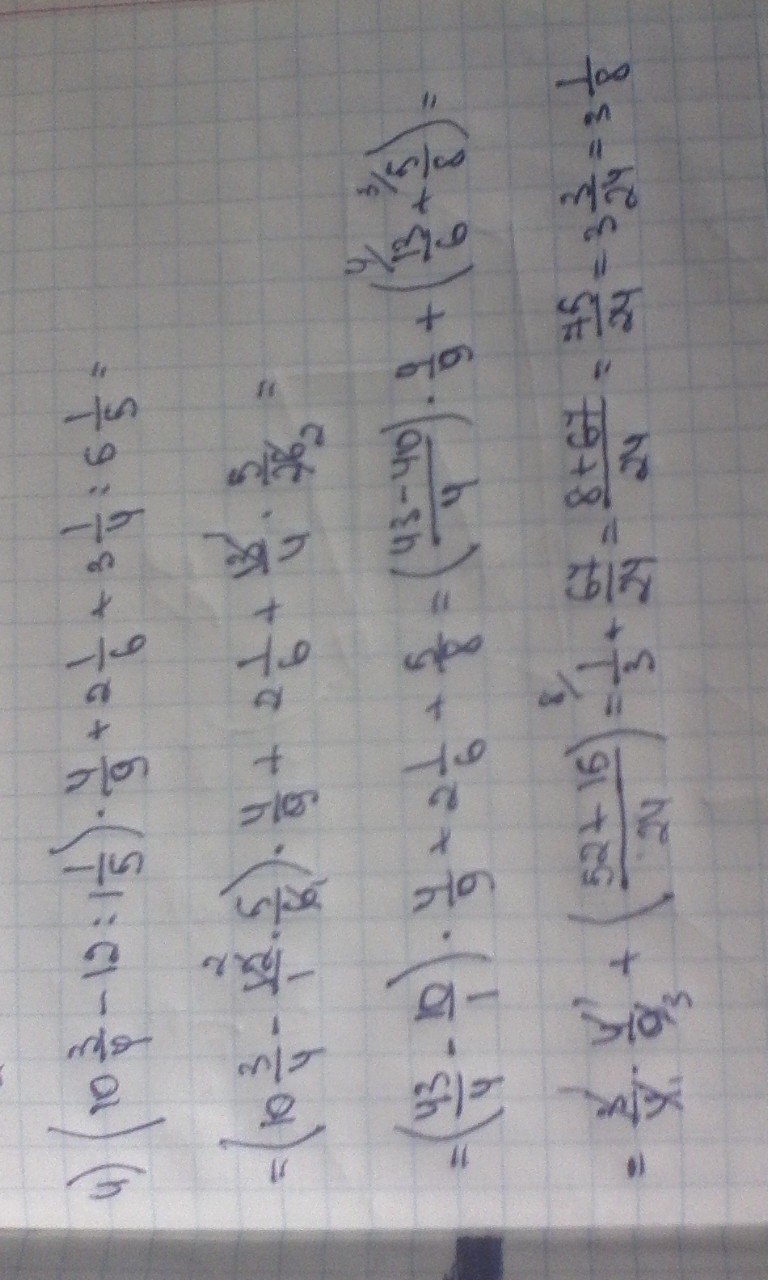 4) (10 3/4 - 12 : 1 1/5) · 4/9 + 2 1/6 + 3 1/4 : 6 1/5 =
= (10 3/4 - 12/1 · 5/6) · 4/9 + 2 1/6 + 13/4 · 5/26 =
= (43/4 - 10/1) · 4/9 + 2 1/6 + 5/8 = ((43-40)/4) · 4/9 + (13/6 + 5/8) =
= 3/4 · 4/9 + ((52+15)/24) = 1/3 + 67/24 = (8+67)/24 = 75/24 = 3 3/24 = 3 1/8